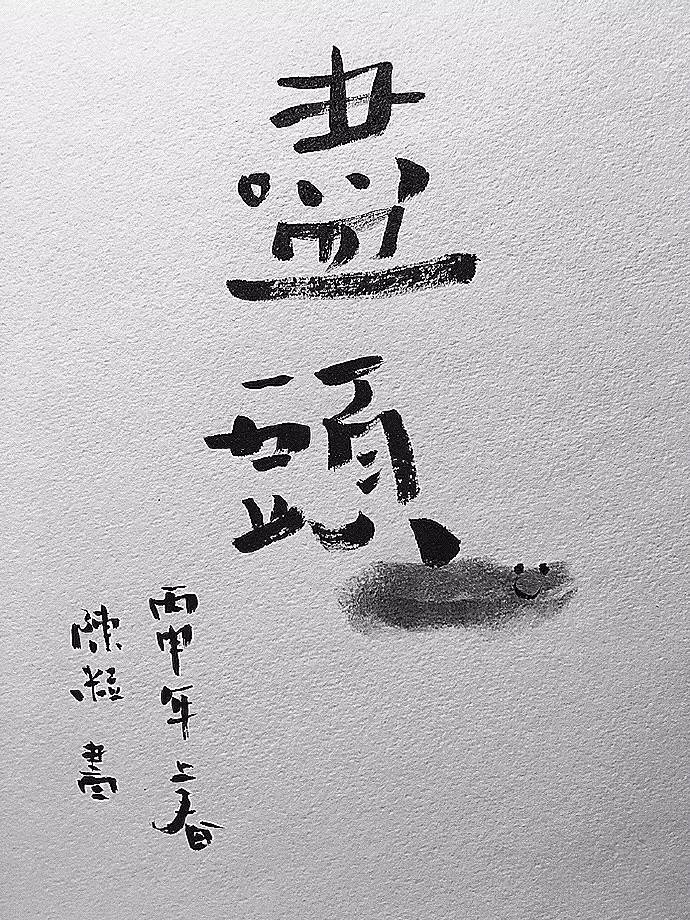 盡頭
丙申年上春
陳粒書